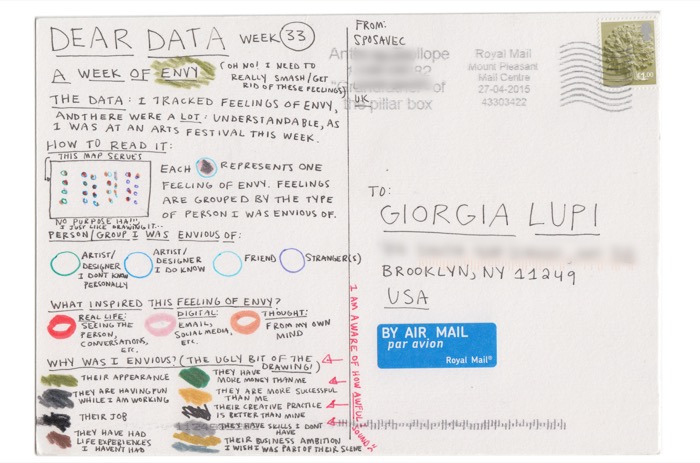 DEAR DATA WEEK 33
A WEEK OF ENVY (OH NO! I NEED TO
REALLY SMASH/GET
RID OF THESE FEELINGS)
THE DATA: I TRACKED FEELINGS OF ENVY,
AND THERE WERE A LOT: UNDERSTANDABLE, AS
I WAS AT AN ARTS FESTIVAL THIS WEEK.
HOW TO READ IT:
THIS MAP SERVES
NO PURPOSE HA!!!,
I JUST LIKE DRAWING IT...
EACH REPRESENTS ONE
FEELING OF ENVY. FEELINGS
ARE GROUPED BY THE TYPE
OF PERSON I WAS ENVIOUS OF.
PERSON/GROUP I WAS ENVIOUS OF:
ARTIST/
DESIGNER
I DON'T KNOW
PERSONALLY
ARTIST/
DESIGNER
I DO KNOW
FRIEND
STRANGER(S)
WHAT INSPIRED THIS FEELING OF ENVY?
REAL LIFE:
SEEING THE
PERSON,
CONVERSATIONS,
ETC.
DIGITAL:
EMAIL,
SOCIAL MEDIA,
ETC.
THOUGHT:
FROM MY OWN
MIND
WHY WAS I ENVIOUS? (THE UGLY BIT OF THE
DRAWING!)
THEIR APPEARANCE
THEY ARE HAVING FUN
WHILE I AM WORKING
THEIR JOB
THEY HAVE HAD
LIFE EXPERIENCES
I HAVEN'T HAD
THEY HAVE
MORE MONEY THAN ME
THEY ARE MORE SUCCESSFUL
THAN ME
THEIR CREATIVE PRACTICE
IS BETTER THAN MINE
THEY HAVE SKILLS I DON'T
HAVE
THEIR BUSINESS AMBITION
I WISH I WAS PART OF THEIR SCENE
I AM AWARE OF HOW AWFUL I SOUND
FROM:
SPOSAVEC
UK
pillar box
Royal Mail
Mount Pleasant
Mail Centre
27-04-2015
43303422
£1.00
TO:
GIORGIA LUPI
BROOKLYN, NY 11249
USA
BY AIR MAIL
par avion
Royal Mail®